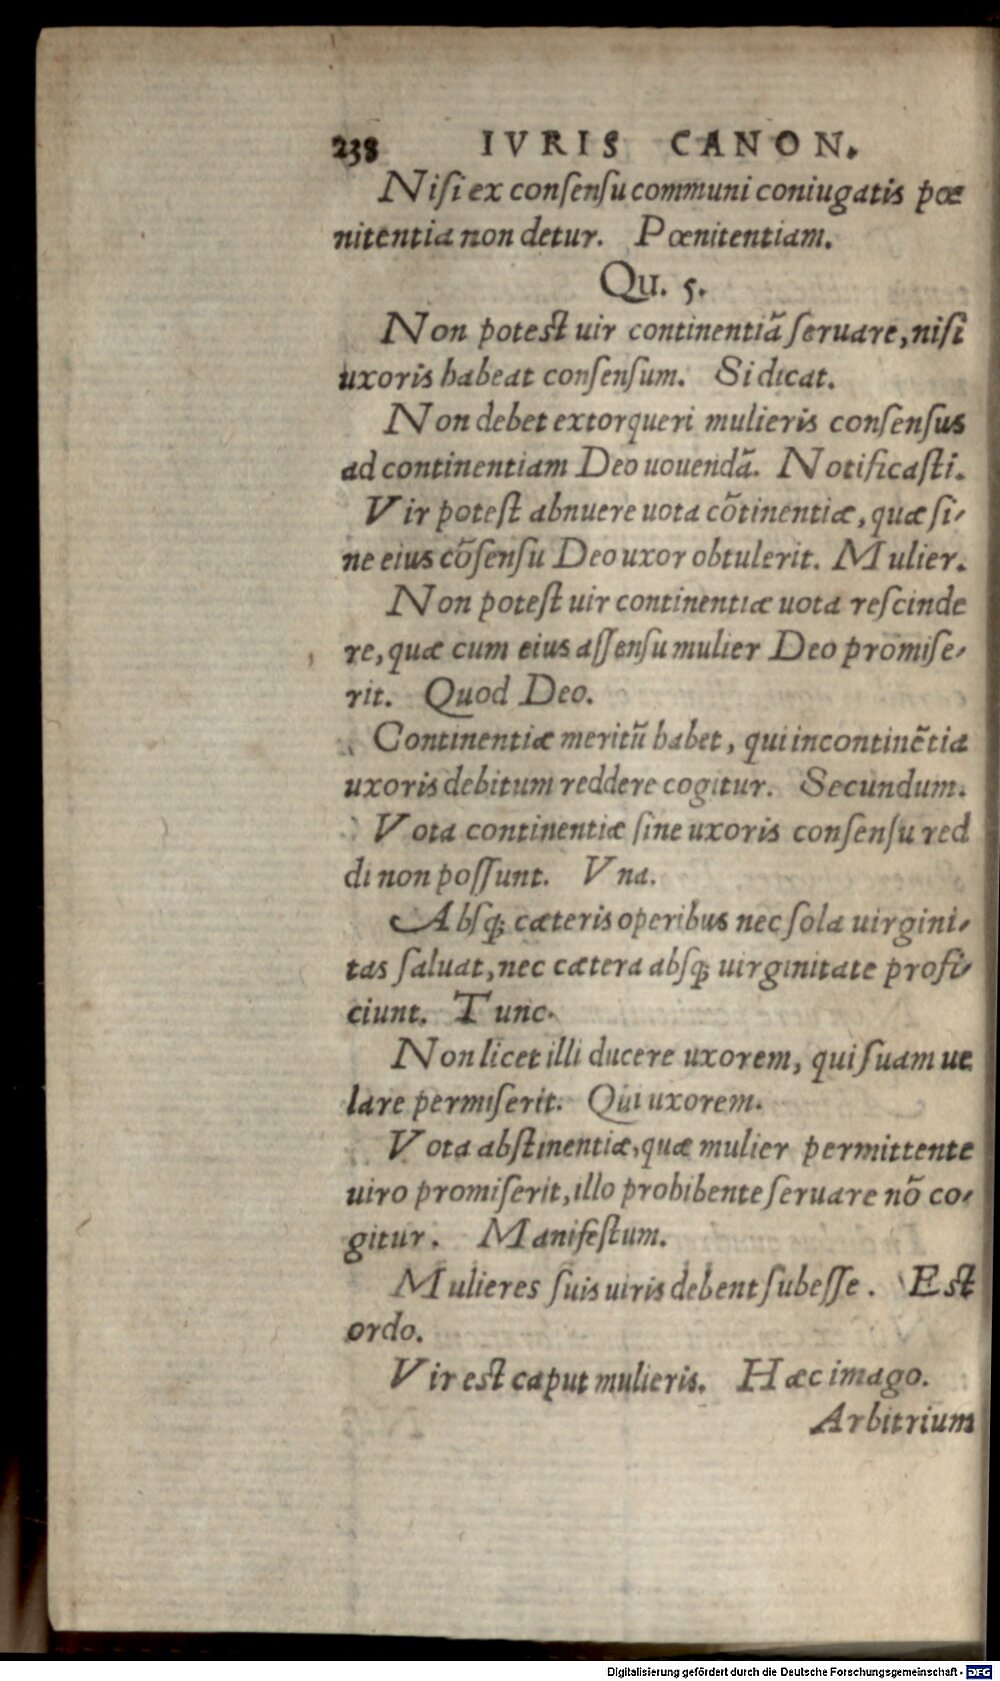 238 IVRIS CANON.
Niſi ex conſenſu communi coniugatis pœ
nitentia non detur. Pœnitentiam.
Qu. 5.
Non poteſt uir continentiã ſeruare, niſi
uxoris habeat conſenſum. Si dicat.
Non debet extorqueri mulieris conſenſus
ad continentiam Deo uouendã. Notificaſti.
Vir poteſt abnuere uota cõtinentiæ, quæ ſi-
ne eius cõſenſu Deo uxor obtulerit. Mulier.
Non poteſt uir continentiæ uota reſcinde
re, quæ cum eius aſſenſu mulier Deo promiſe-
rit. Quod Deo.
Continentiæ meritũ habet, qui incontinẽtia
uxoris debitum reddere cogitur. Secundum.
Vota continentiæ ſine uxoris conſenſu red
di non poſſunt. Vna.
Abſq; cæteris operibus nec ſola uirgini-
tas ſaluat, nec cætera abſq; uirginitate profi-
ciunt. Tunc.
Non licet illi ducere uxorem, qui ſuam ue
lare permiſerit. Qui uxorem.
Vota abſtinentiæ, quæ mulier permittente
uiro promiſerit, illo prohibente ſeruare nõ co-
gitur. Manifeſtum.
Mulieres ſuis uiris debent ſubeſſe. Eſt
ordo.
Vir eſt caput mulieris. Hæc imago.
Arbitrium
Digitalisierung gefördert durch die Deutsche Forschungsgemeinschaft - DFG